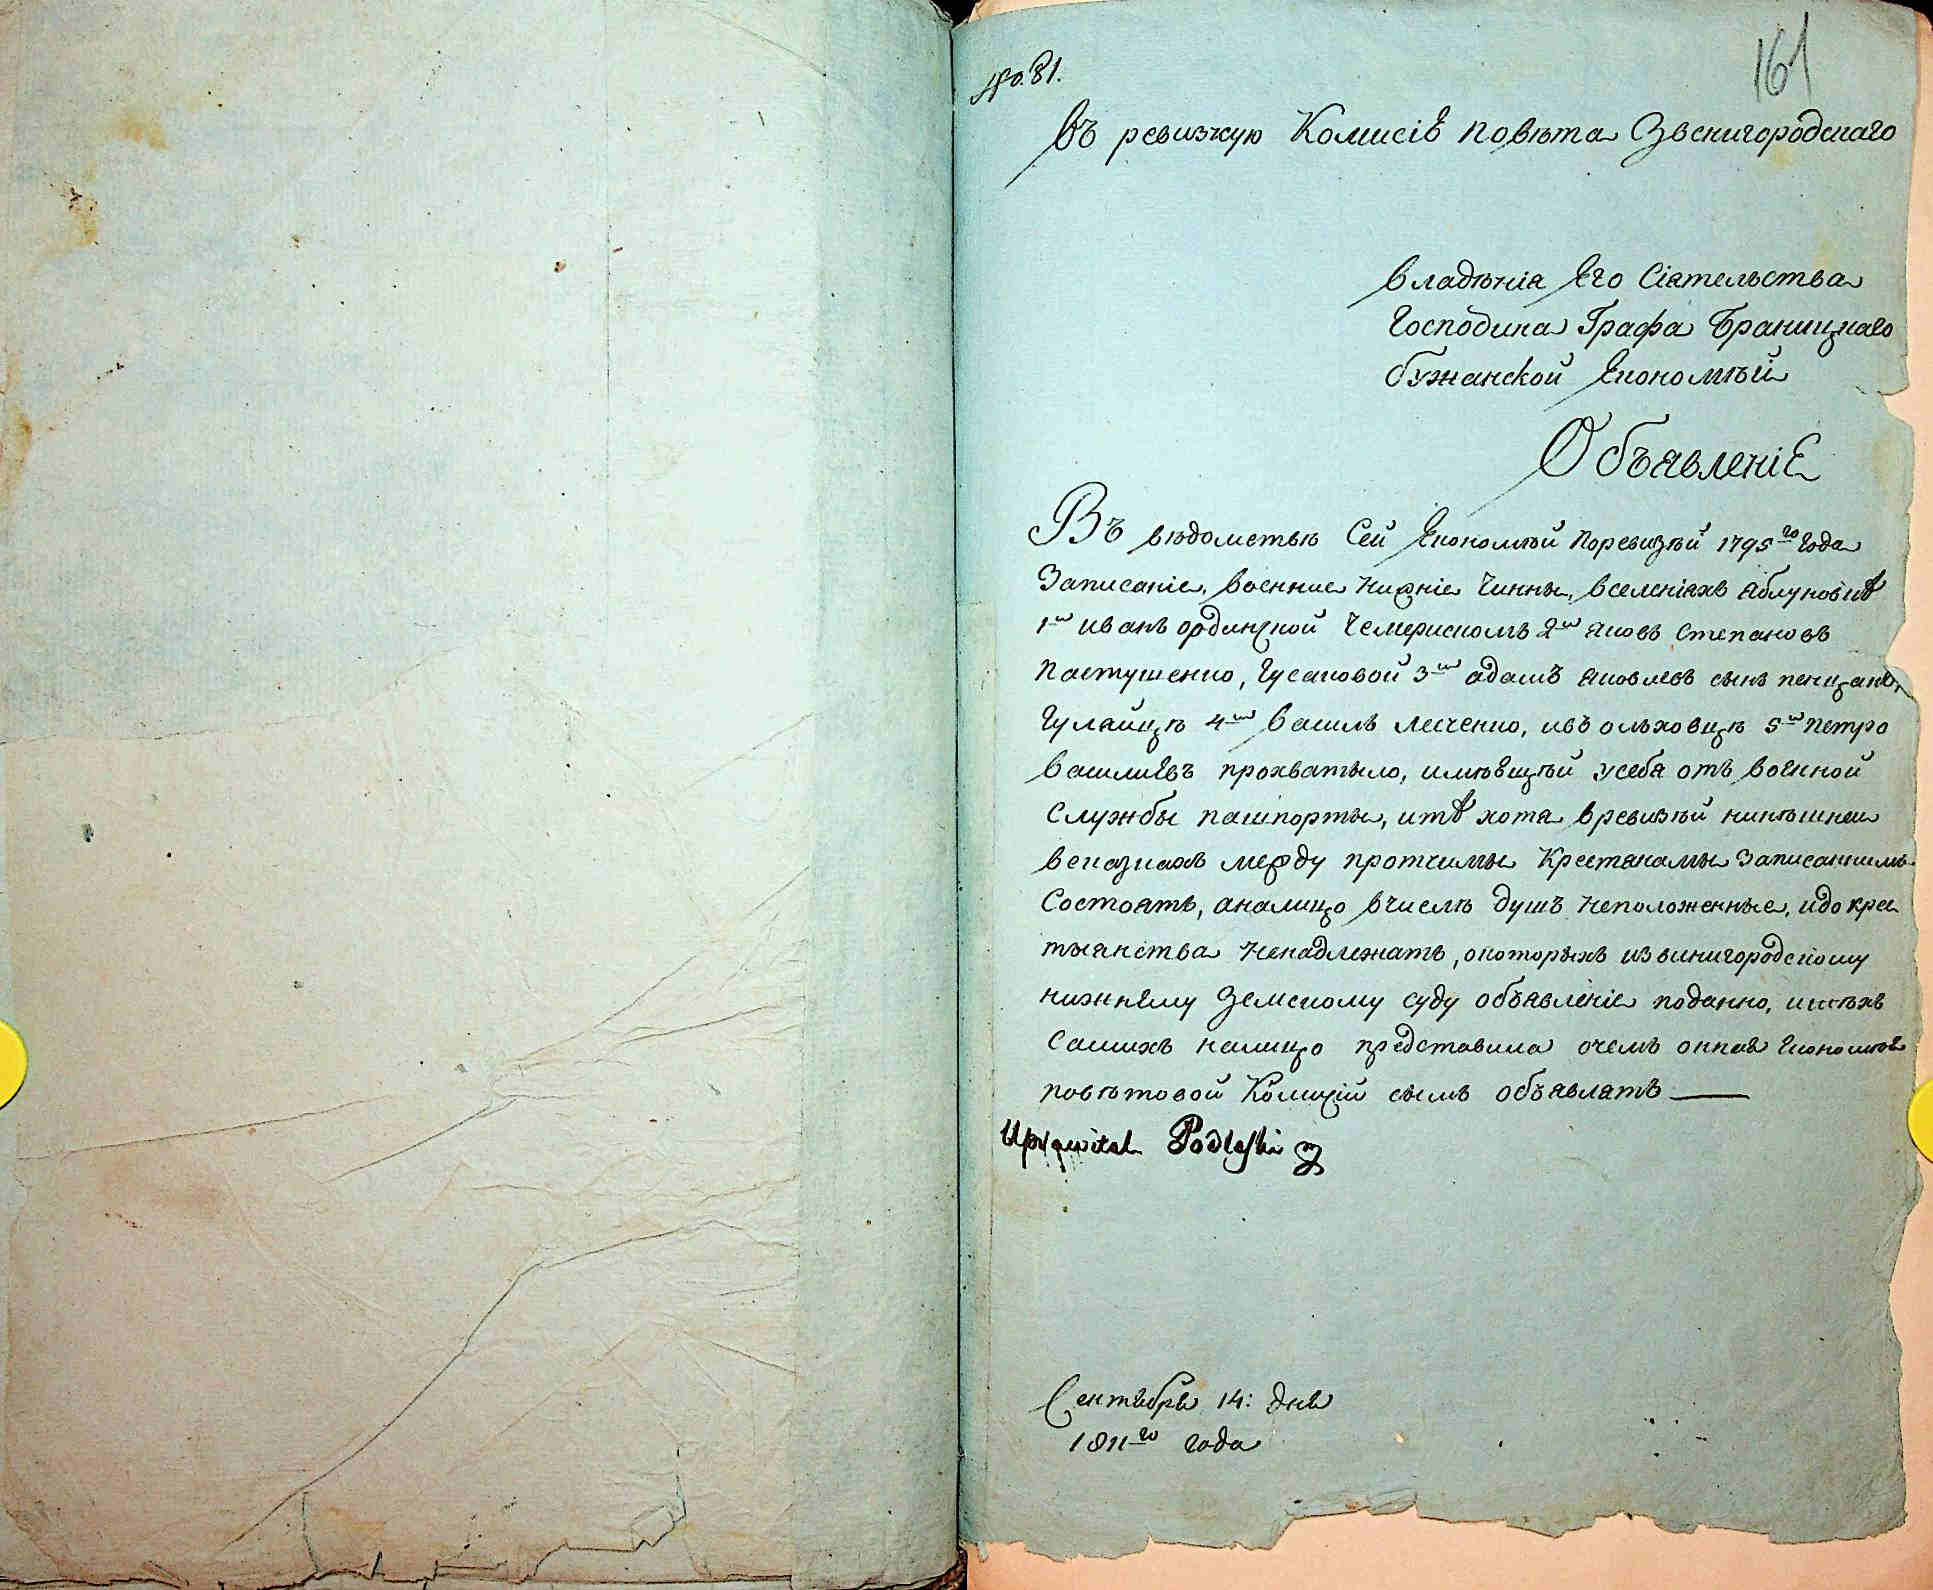 161
№ 81.
Въ ревизкую Комисію повѣта Звенигородскаго
Владѣнія Его Сіятельства
Господина Графа Браницкаго
бужанской Економѣй
ОбъявленіЕ
Въ вѣдомствѣ Сей Економѣй поревизѣй 1795го года
Записаніе, военние нижніе Чинны, вселеніяхъ яблуновкѣ
1ш иванъ ординской Чемерискомъ 2ш яковъ степановъ
пастушенко, Гусаковой 3ш адамъ яковлевъ сынъ
Гулайцѣ 4ш василь лесченко, ивъ ольховцѣ 5ш петро
василиевъ прохватыло, имѣещѣй усебя отъ военной
Службы пашпорты, итѣ хотя вревизѣй нинѣшнеи
всказкахъ между протчимы Крестянамы Записанним
Состоятъ, аналицо вчислѣ душъ неположенные, идо крес
тьянства ненадлежатъ, окоторыхъ извинигородскому
нижнему Земскому суду объявленіе поданно, итѣхъ
Самихъ налицо представила очемъ оная Економія
повѣтовой Комисій симъ объявлятъ —
Uprawitel Podleski
Сентября 14: дня
1811го года